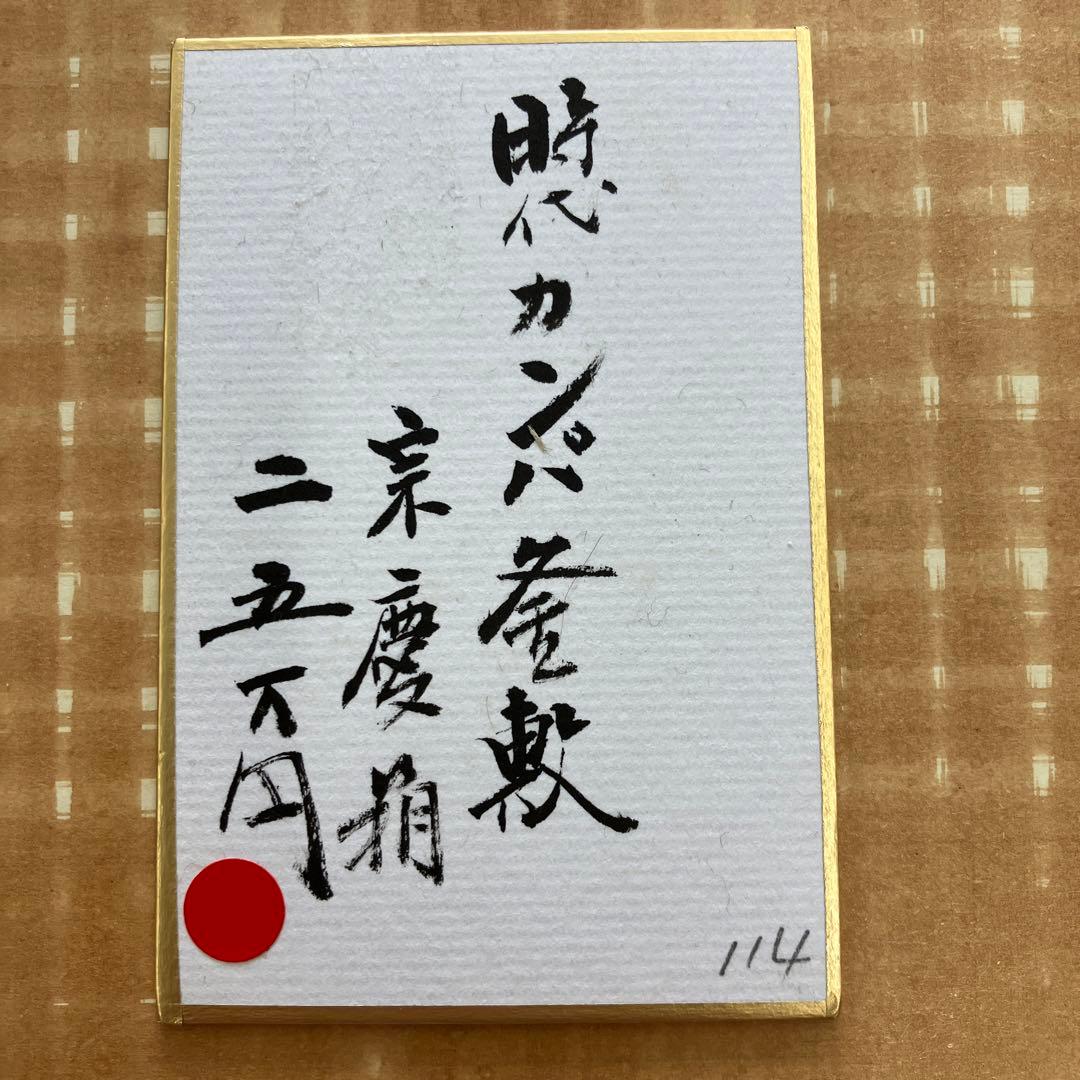 時代カンパ釜敷
宗慶指
二五万円
114